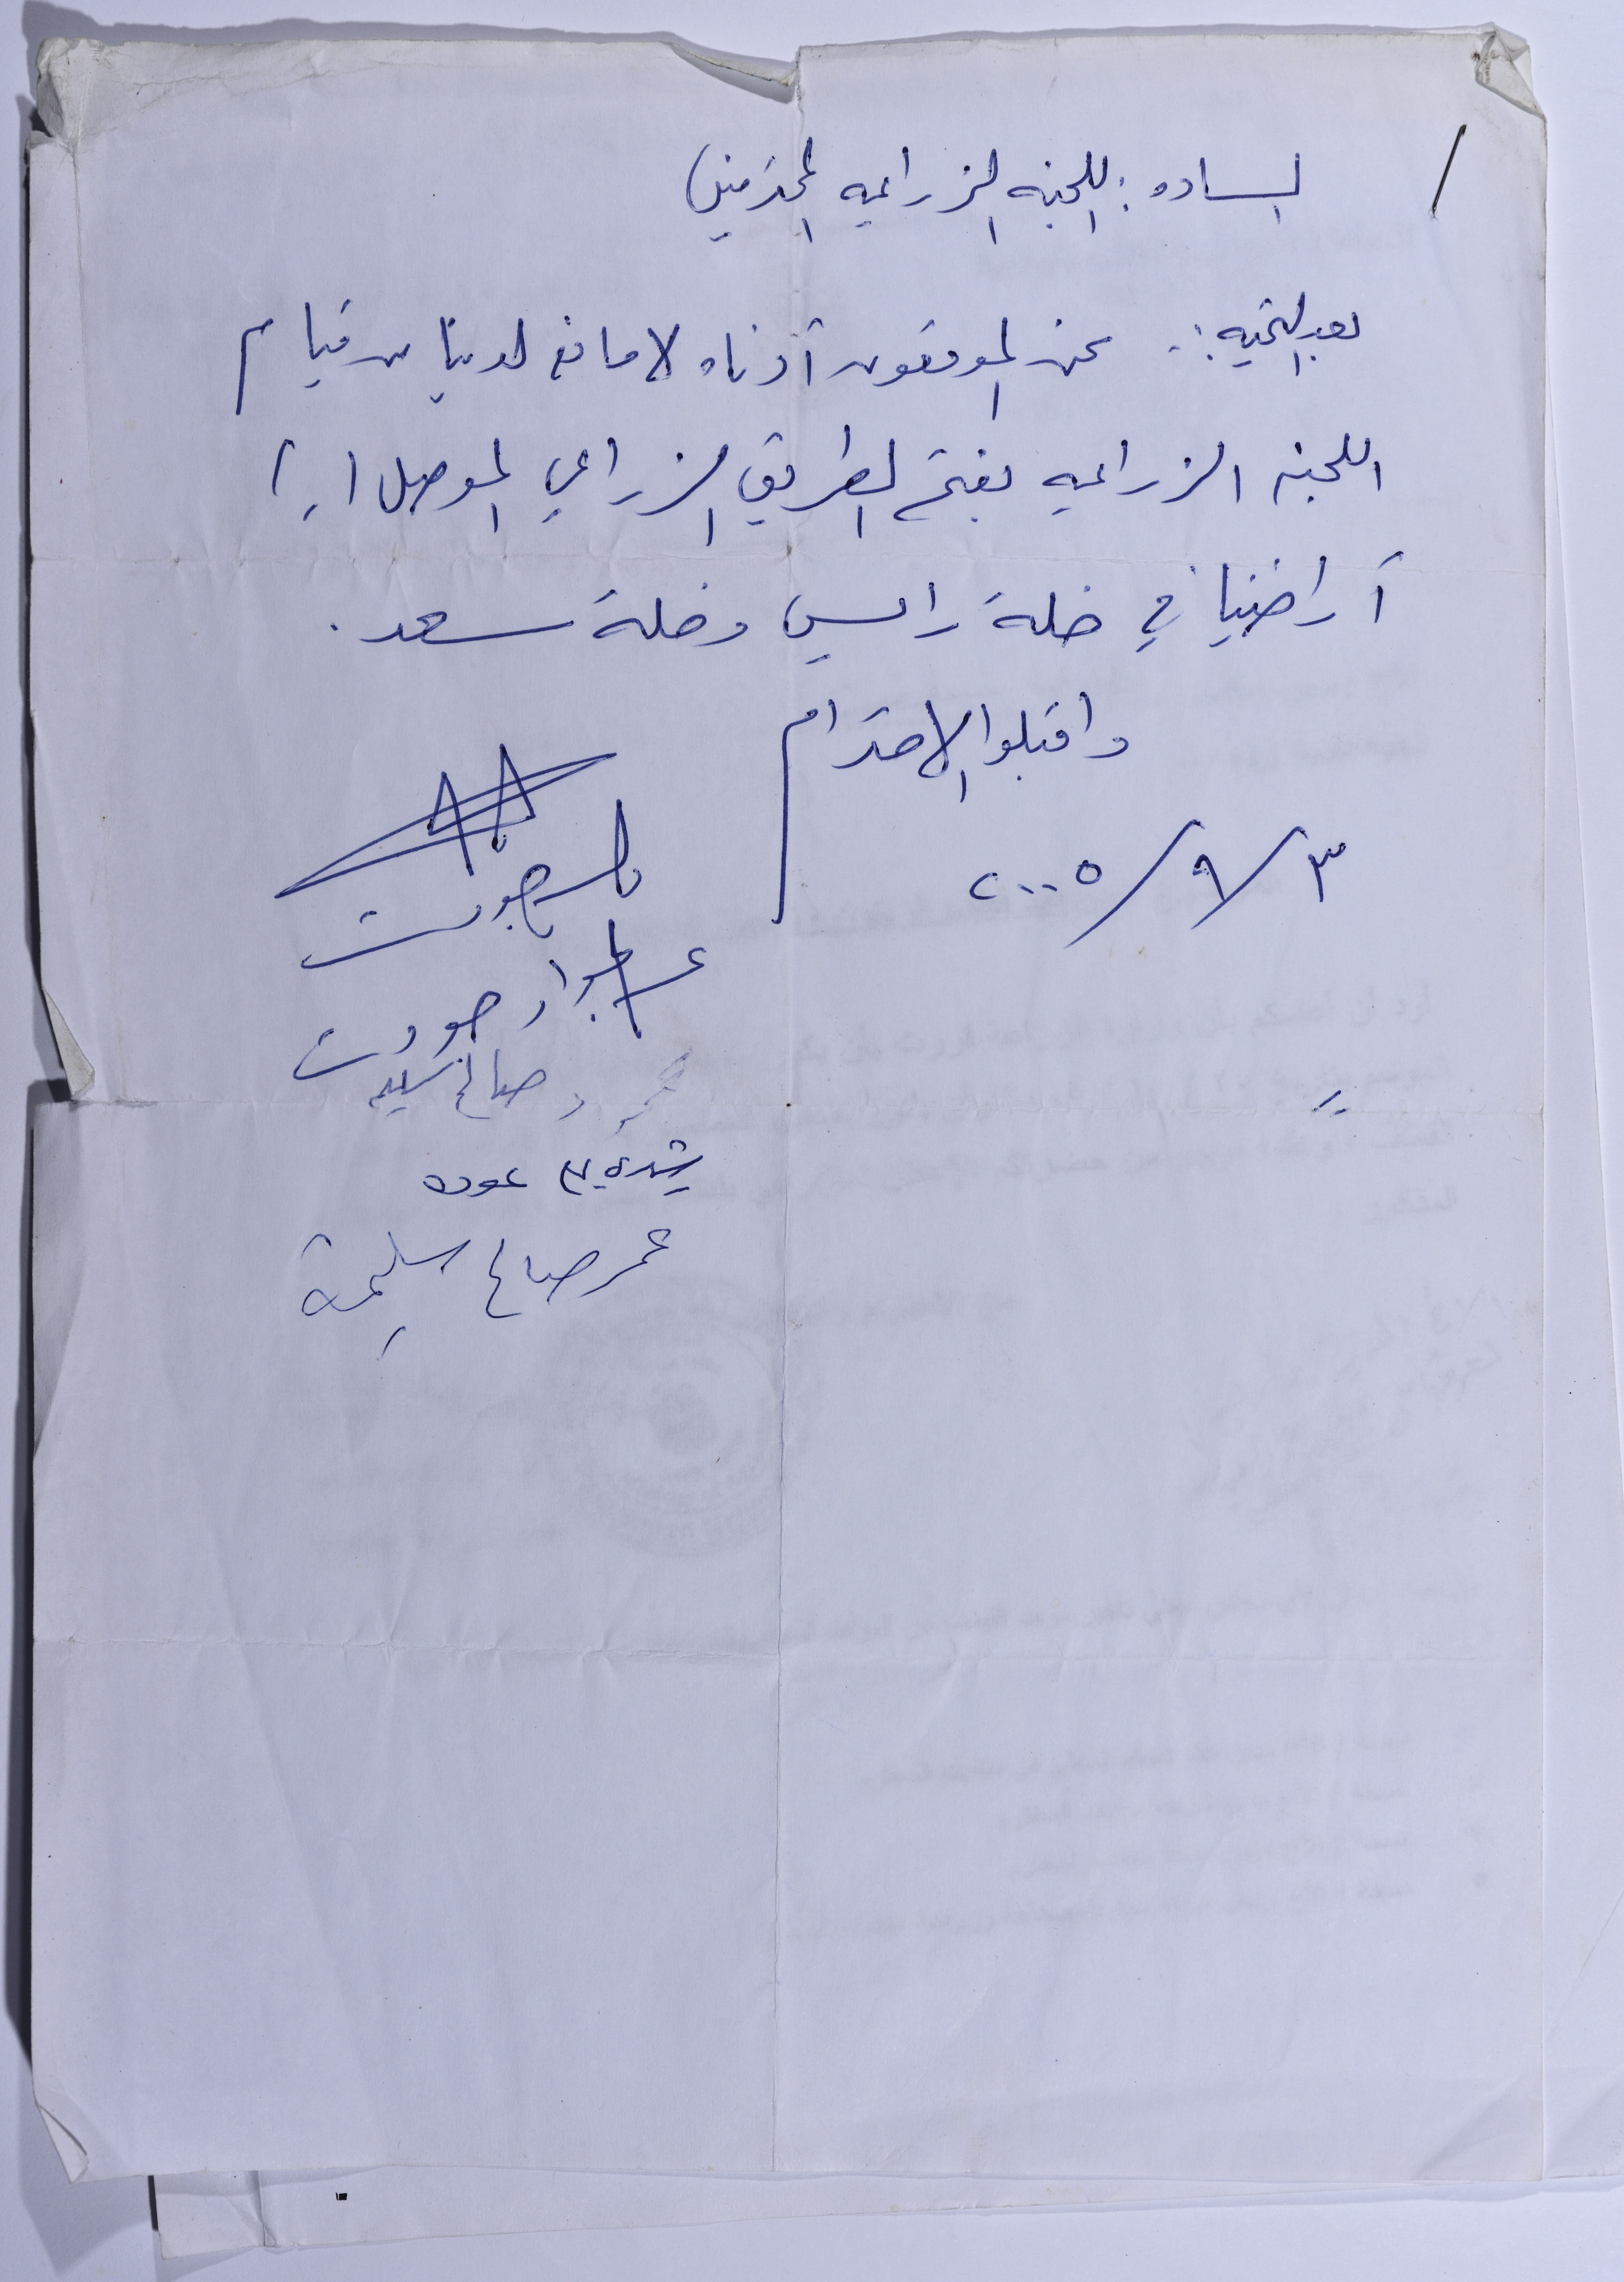 الساده : اللجنه الزراعيه المحترمين /
بعد التحيه :. نحن الموقعون أدناه لا مانع لدينا من قيام
اللجنه الزراعيه بفتح الطريق الزراعي الموصل الى
أراضينا في خلة رابس وخلة سعد .
واقبلوا الاحترام
٣/٩/٢٠٠٥
باسر جودت
عبد الجواد جودت
محمود صالح سليم
عوده
عمر صالح سليمة